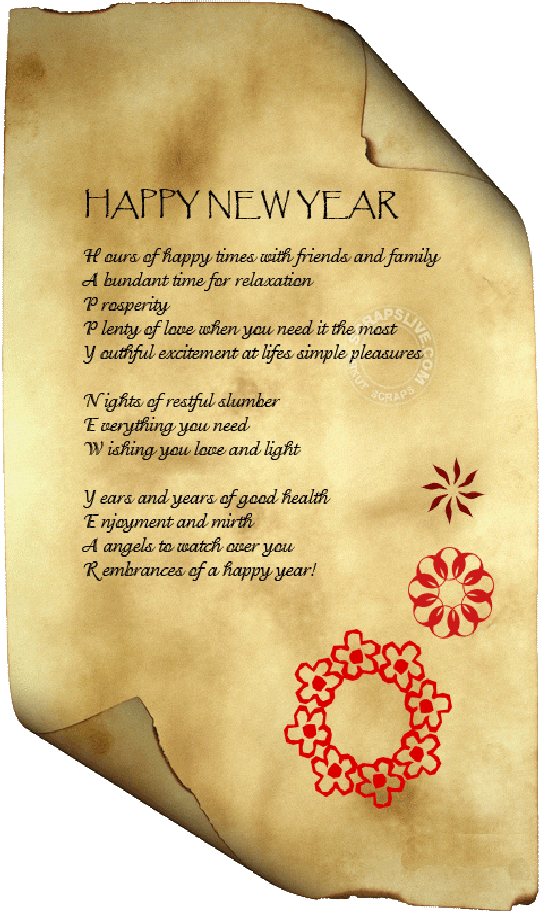 HAPPY NEW YEAR
H ours of happy times with friends and family
A bundant time for relaxation
P rosperity
P lenty of love when you need it the most
Y outhful excitement at lifes simple pleasures
N ights of restful slumber
E verything you need
W ishing you love and light
Y ears and years of good health
E njoyment and mirth
A angels to watch over you
R embrances of a happy year!
SCRAPSLIVE.COM
SCRAPS